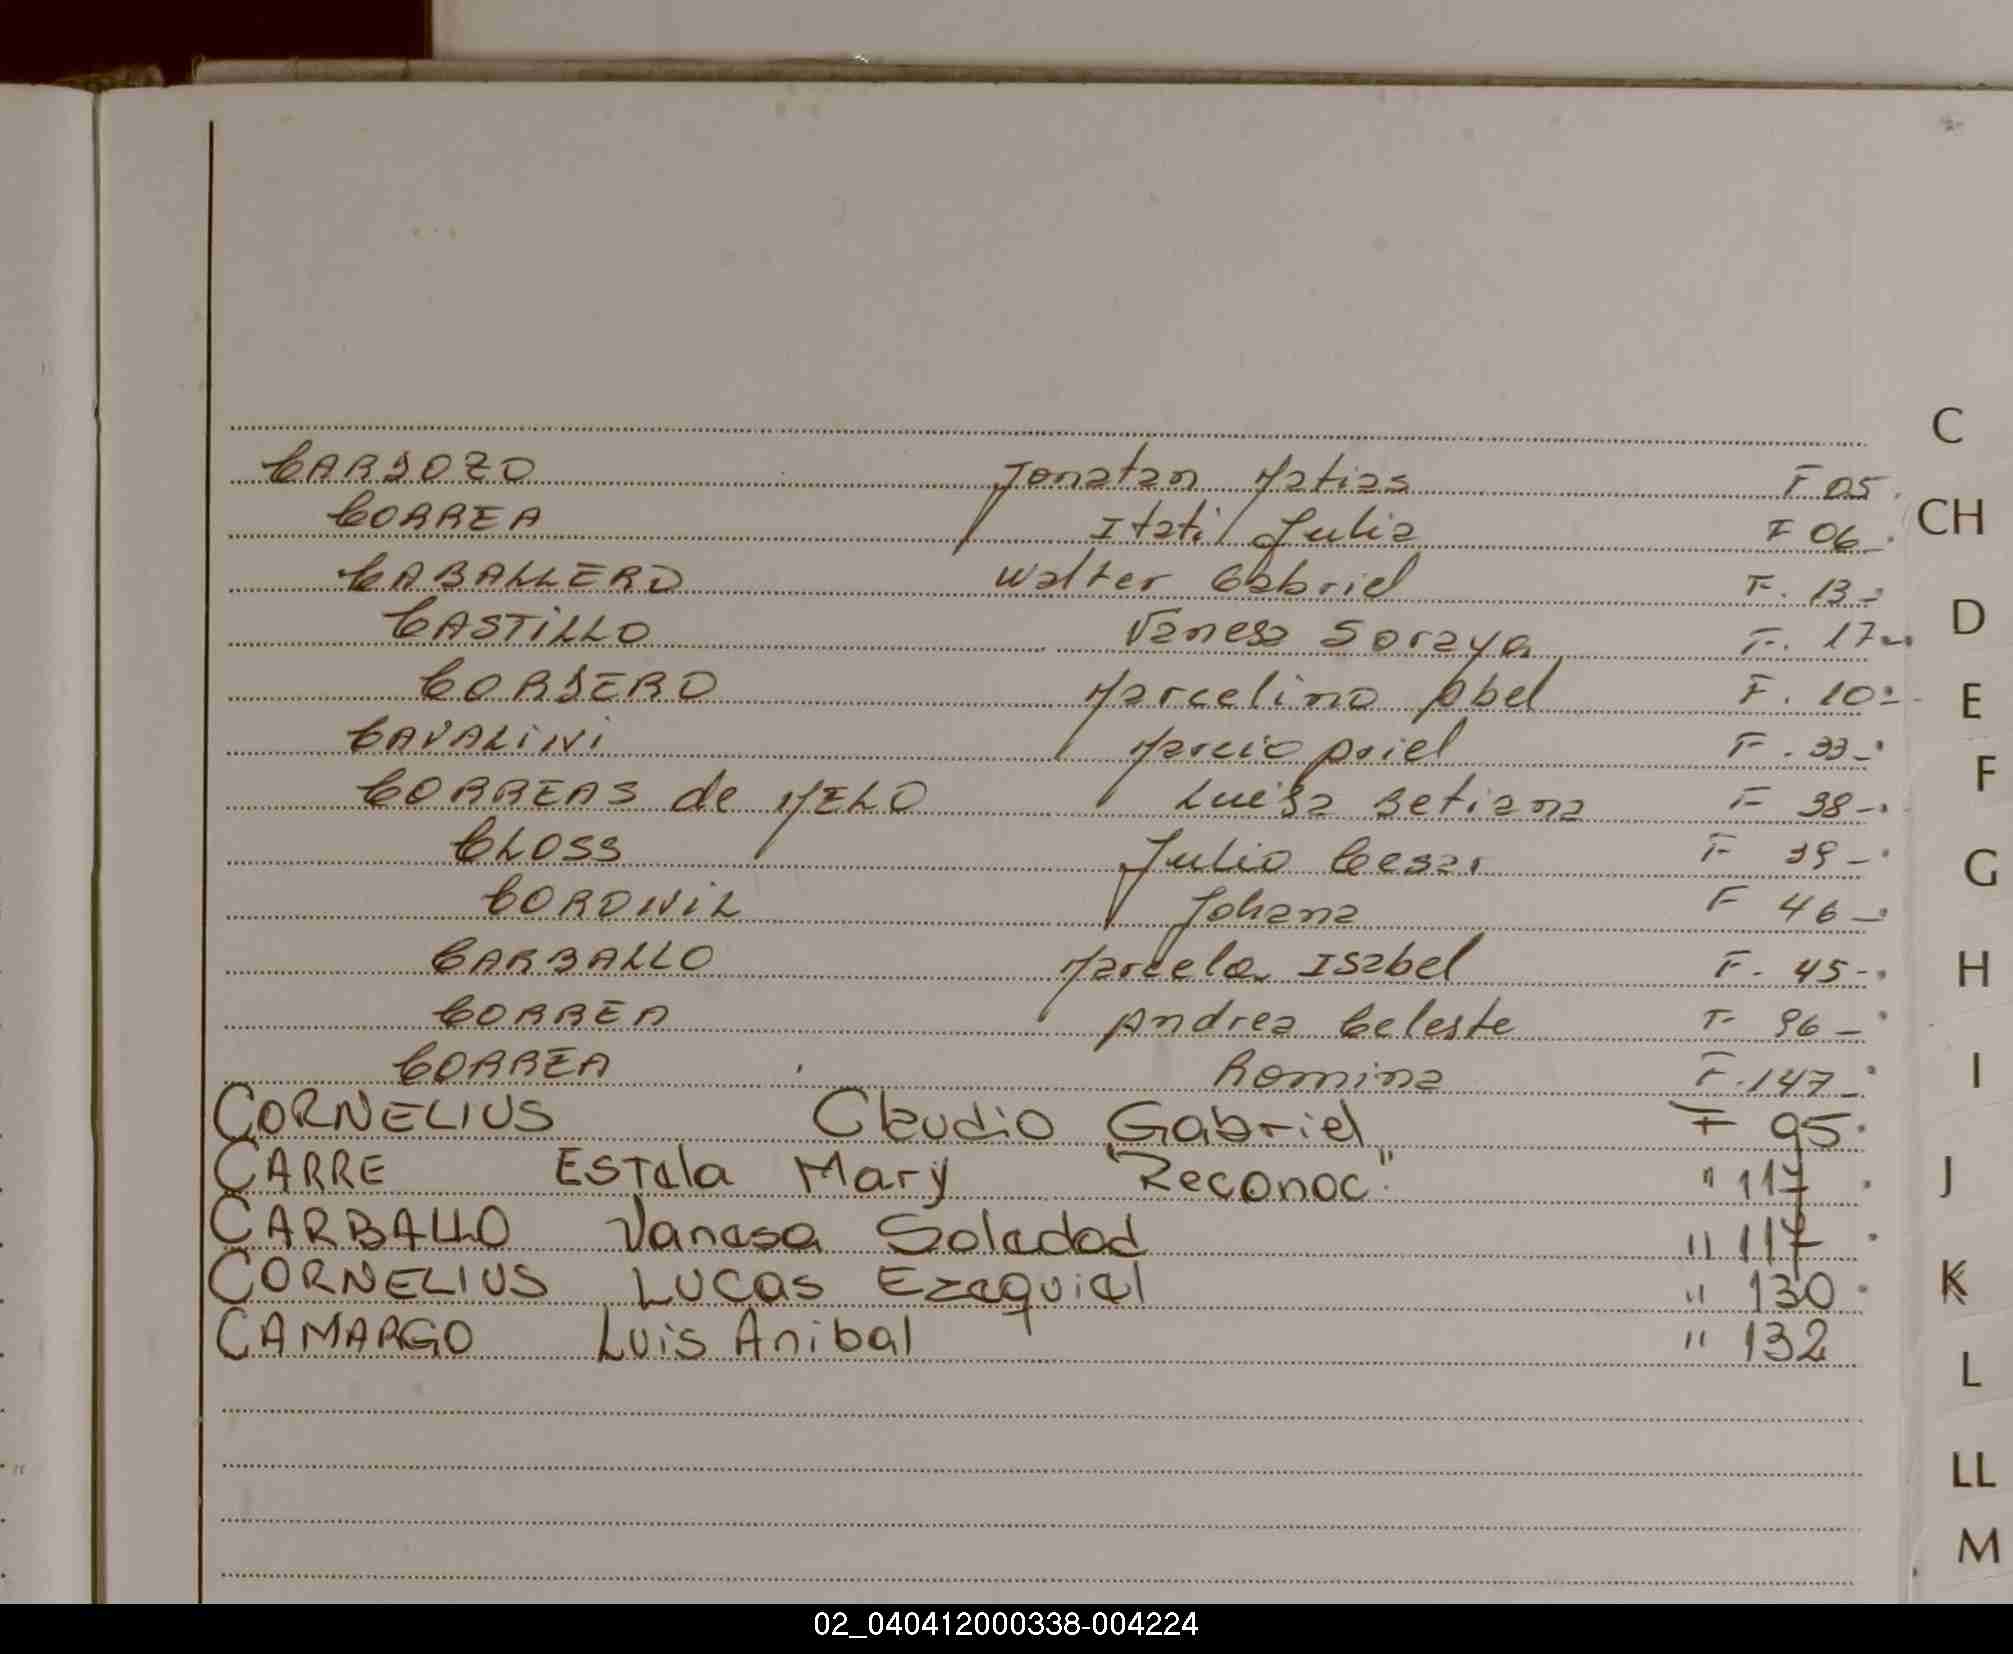 C
CARDOZO Jonatan Matias F 05.
CH
CORREA Itati Julia F 06-.
CABALLERO Walter Gabriel F. 13-
D
CASTiLLO Vanesa Soraya F. 17-.
CORDERO Marcelino Abel F. 10-
E
CAVALiNi Marcio Ariel F. 33-.
F
CORREAS de MELO Luisa Betiana F 38-.
CLOSS Julio Cesar F 39-.
G
CORONiL Johana F 46-.
CARBALLO Marcela Isabel F. 45-.
H
CORREA Andrea Celeste F 96-.
CORREA Romina F. 147-.
I
CORNELIUS Claudio Gabriel F 95.
CARRE EStela Mary "Reconoc". " 117.
J
CARBALLO Vanesa Soledad " 117.
CORNELIUS LUCas Ezequiel " 130.
K
CAMARGO Luis Anibal " 132
L
LL
M
02_040412000338-004224